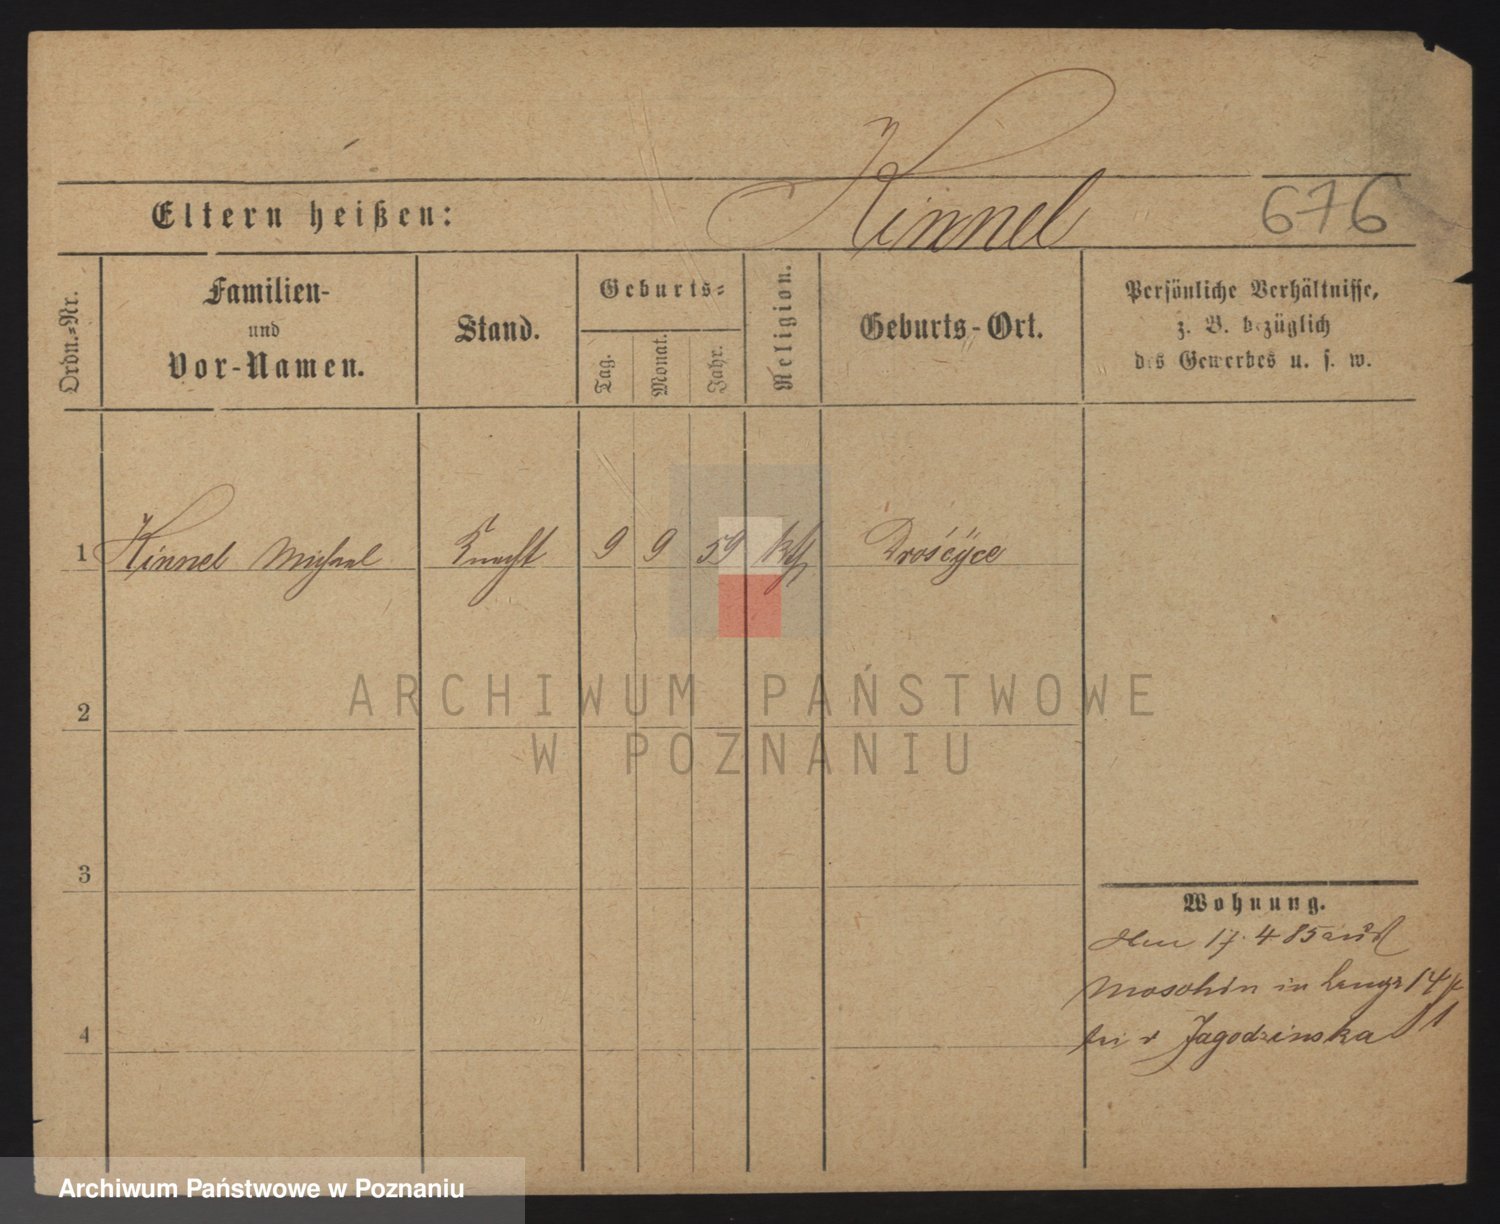 Kinnel
676
Eltern heißen:
Ordn.-Nr.
Familien-
und
Vor-Namen.
Stand.
Geburts-
Tag.
Monat.
Jahr.
Religion.
Geburts-Ort.
Persönliche Verhältnisse,
z. B. bezüglich
des Gewerbes u. s. w.
1 Kinnel Michael Knecht 9 9 59 kth Drośćyce
2
3
4
Wohnung.
17. 4 85 aus
Moschin in
Jagodzinska
ARCHIWUM PAŃSTWOWE
W POZNANIU
Archiwum Państwowe w Poznaniu